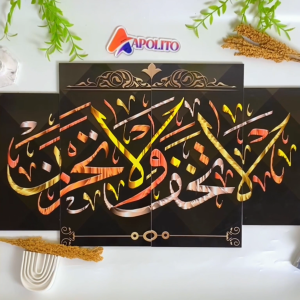 APOLITO
لا تخف ولا تحزن